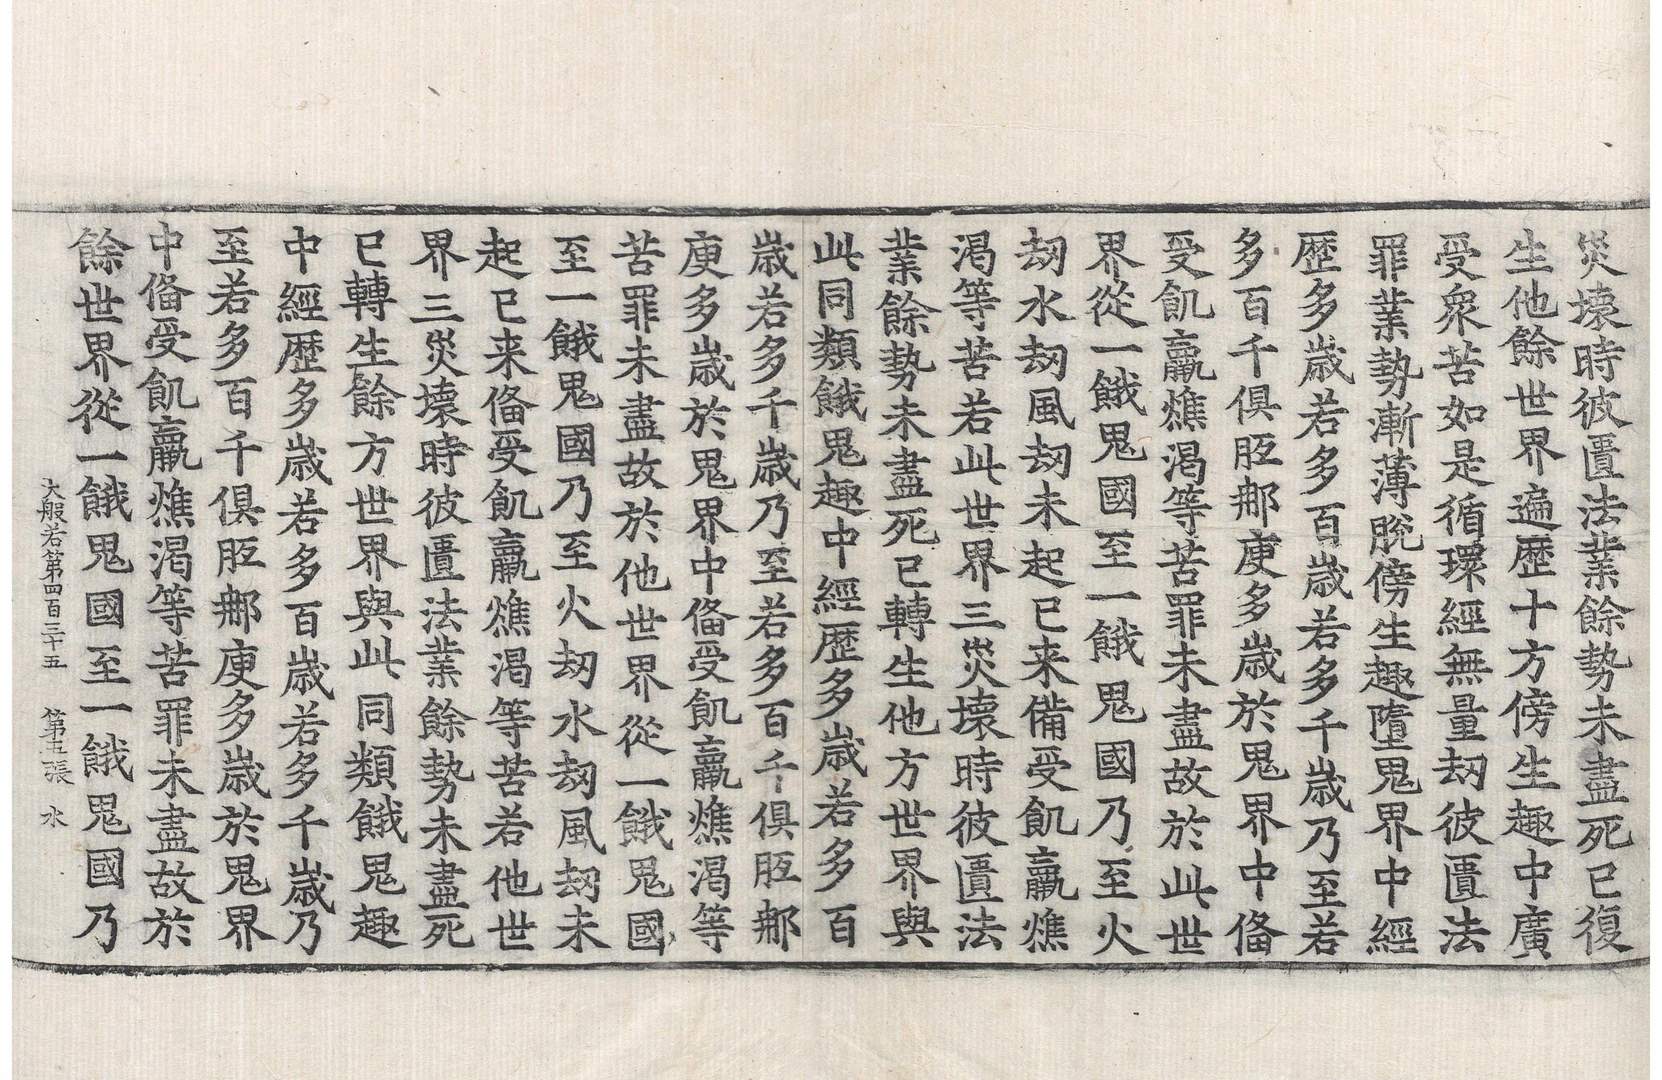 災壞時彼匱法業餘勢未盡死已復
生他餘世界遍歷十方傍生趣中廣
受衆苦如是循環經無量劫彼匱法
罪業勢漸薄脫傍生趣墮鬼界中經
歷多歲若多百歲若多千歲乃至若
多百千俱胝那庾多歲於鬼界中俻
受飢羸燋渴等苦罪未盡故於此世
界從一餓鬼國至一餓鬼國乃至火
劫水劫風劫未起已来備受飢羸燋
渴等苦若此世界三災壞時彼匱法
業餘勢未盡死已轉生他方世界與
此同類餓鬼趣中經歷多歲若多百
歲若多千歲乃至若多百千俱胝那
庾多歲於鬼界中俻受飢羸燋渴等
苦罪未盡故於他世界從一餓鬼國
至一餓鬼國乃至火劫水劫風劫未
起已来俻受飢羸燋渴等苦若他世
界三災壞時彼匱法業餘勢未盡死
已轉生餘方世界與此同類餓鬼趣
中經歷多歲若多百歲若多千歲乃
至若多百千俱胝那庾多歲於鬼界
中俻受飢羸燋渴等苦罪未盡故於
餘世界從一餓鬼國至一餓鬼國乃
大般若第四百三十五 第五張 水